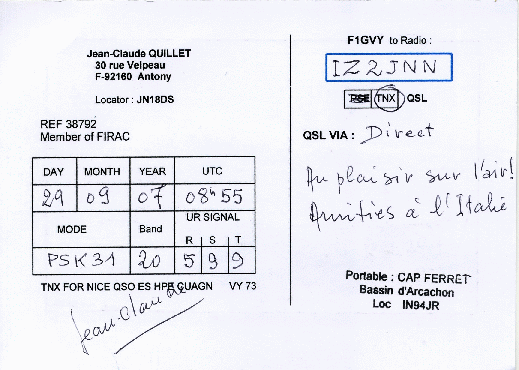 Jean-Claude QUILLET
30 rue Velpeau
F-92160 Antony
Locator : JN18DS
REF 38792
Member of FIRAC
DAY MONTH YEAR UTC
29 09 07 08h55
MODE Band UR SIGNAL
R S T
PSK31 20 5 9 9
TNX FOR NICE QSO ES HPE CUAGN VY 73
Jean-Claude
F1GVY to Radio :
IZ2JNN
PSE TNX QSL
QSL VIA : Direct
Au plaisir sur l'air!
Amitiés à l'Italie
Portable : CAP FERRET
Bassin d'Arcachon
Loc IN94JR